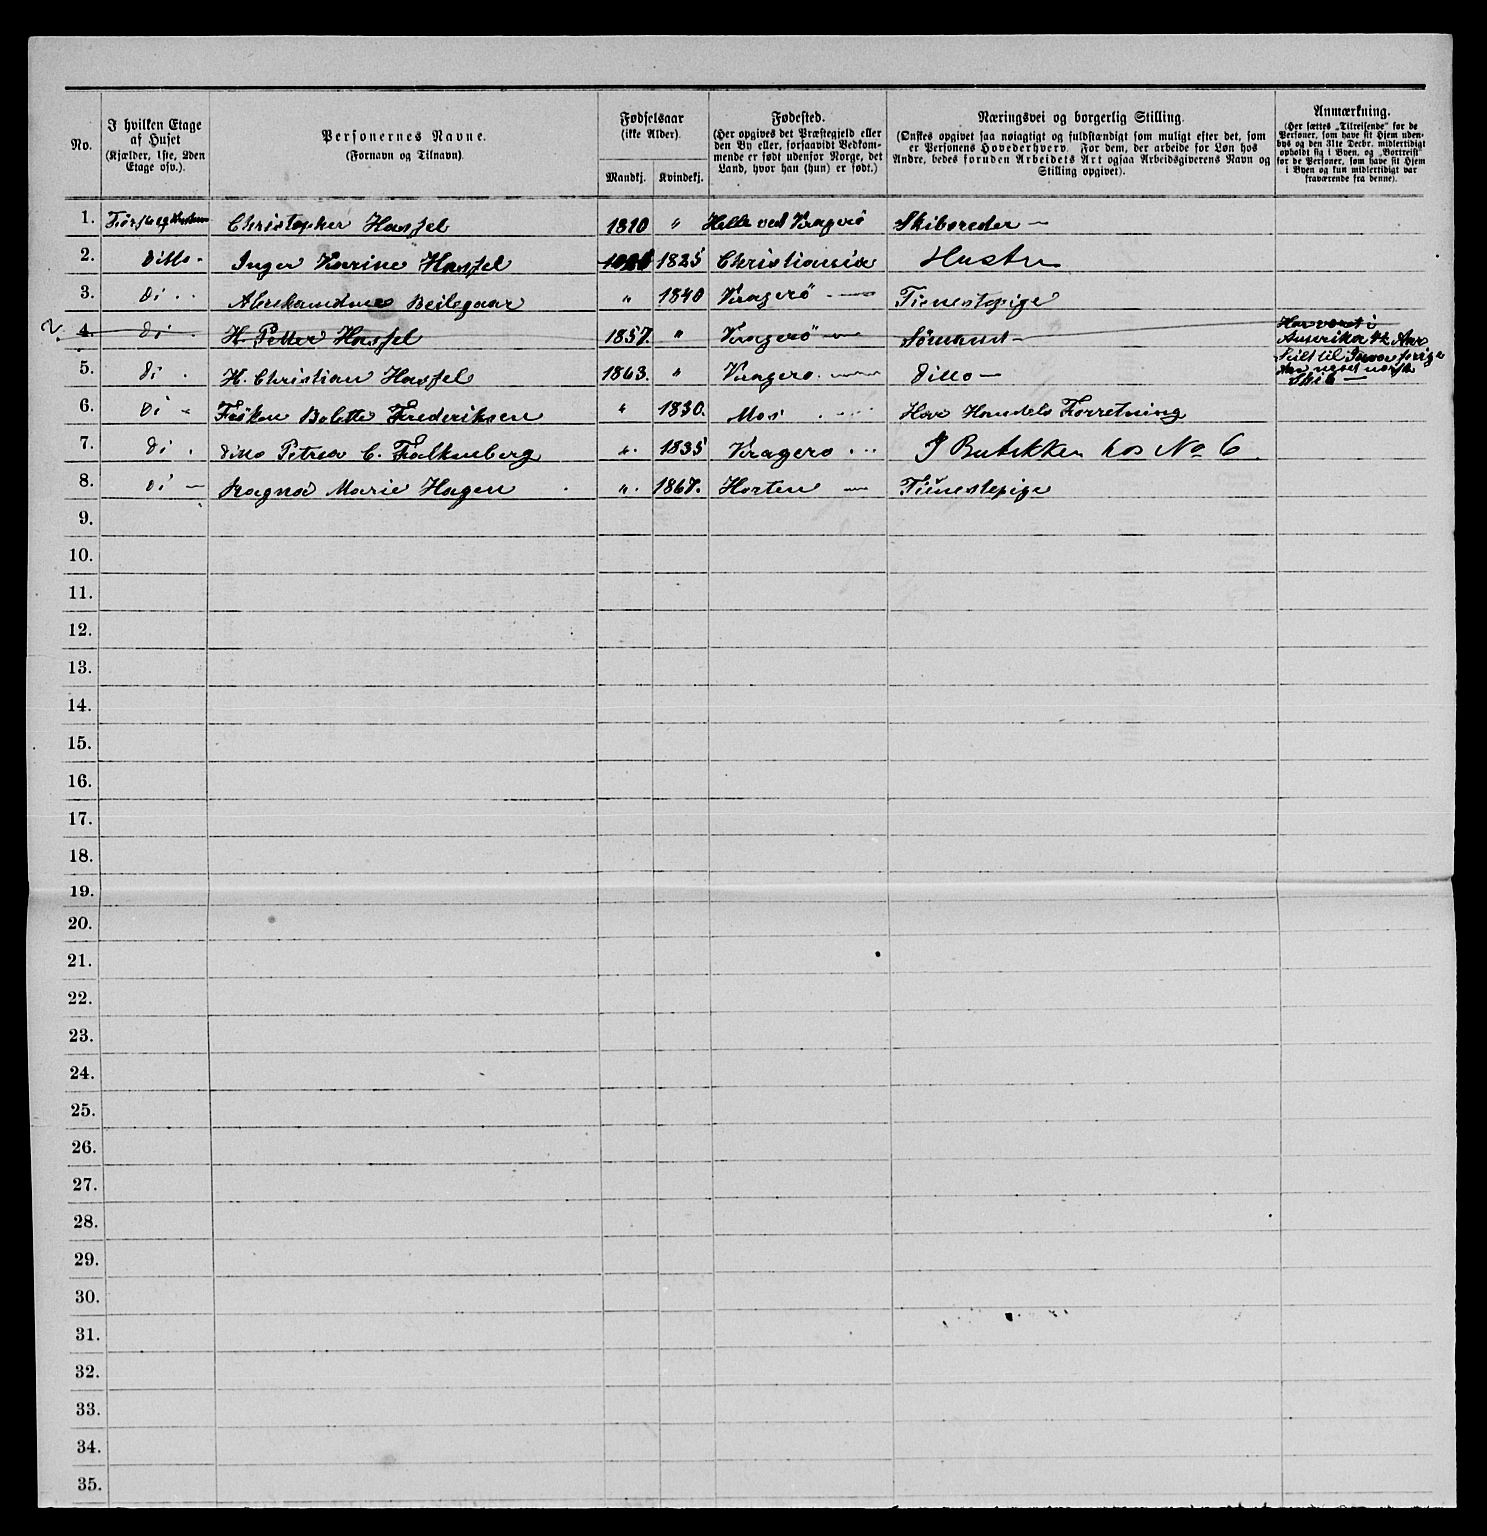 No.
I hvilken Etage
af Huset
(Kjælder, 1ste, 2den
Etage osv.).
Personernes Navne.
(Fornavn og Tilnavn).
Fødselsaar
(ikke Alder).
Mandkj. Kvindekj.
Fødested.
(Her opgives det Præstegjeld eller
den By eller, forsaavidt Vedkom-
mende er født udenfor Norge, det
Land, hvor han (hun) er født.)
Næringsvei og borgerlig Stilling.
(Ønskes opgivet saa nøiagtigt og fuldstændigt som muligt efter det, som
er Personens Hovederhverv. For dem, der arbeide for Løn hos
Andre, bedes foruden Arbeidets Art ogsaa Arbeidsgiverens Navn og
Stilling opgivet).
Anmærkning.
(Her sættes „Tilreisende“ for de
Personer, som have sit Hjem uden-
bys og den 31te Decbr. midlertidigt
opholdt sig i Byen, og „Bortreist“
for de Personer, som have sit Hjem
i Byen og kun midlertidigt var
fraværende fra denne).
1. Christopher Hassel 1810 " Helle ved Kragerö Skibsreder —
2. Ditto. Inger Karine Hassel 1825 Christiania Hustru
3. Di . . " 1840 Kragerö — Tienestepige
4. Di . H. Petter Hassel 1857. " Kragerö — Sömand —
Har været i
Amerika
5. Di . H. Christian Hassel 1863. " Kragero. — Ditto —
Seilt til
Skib —
6. Di - Fröken Bolette Frederiksen " 1830. Mos . . . . Har Handels Forretning
7. Di . Ditto Petrea C. Falkenberg ". 1835 Kragero . . . I Butikken hos No 6.
8. Di — Ragna Marie Hagen . ". 1867. Horten — Tienestepige
9.
10.
11.
12.
13.
14.
15.
16.
17.
18.
19.
20.
21.
22.
23.
24.
25.
26.
27.
28.
29.
30.
31.
32.
33.
34.
35.